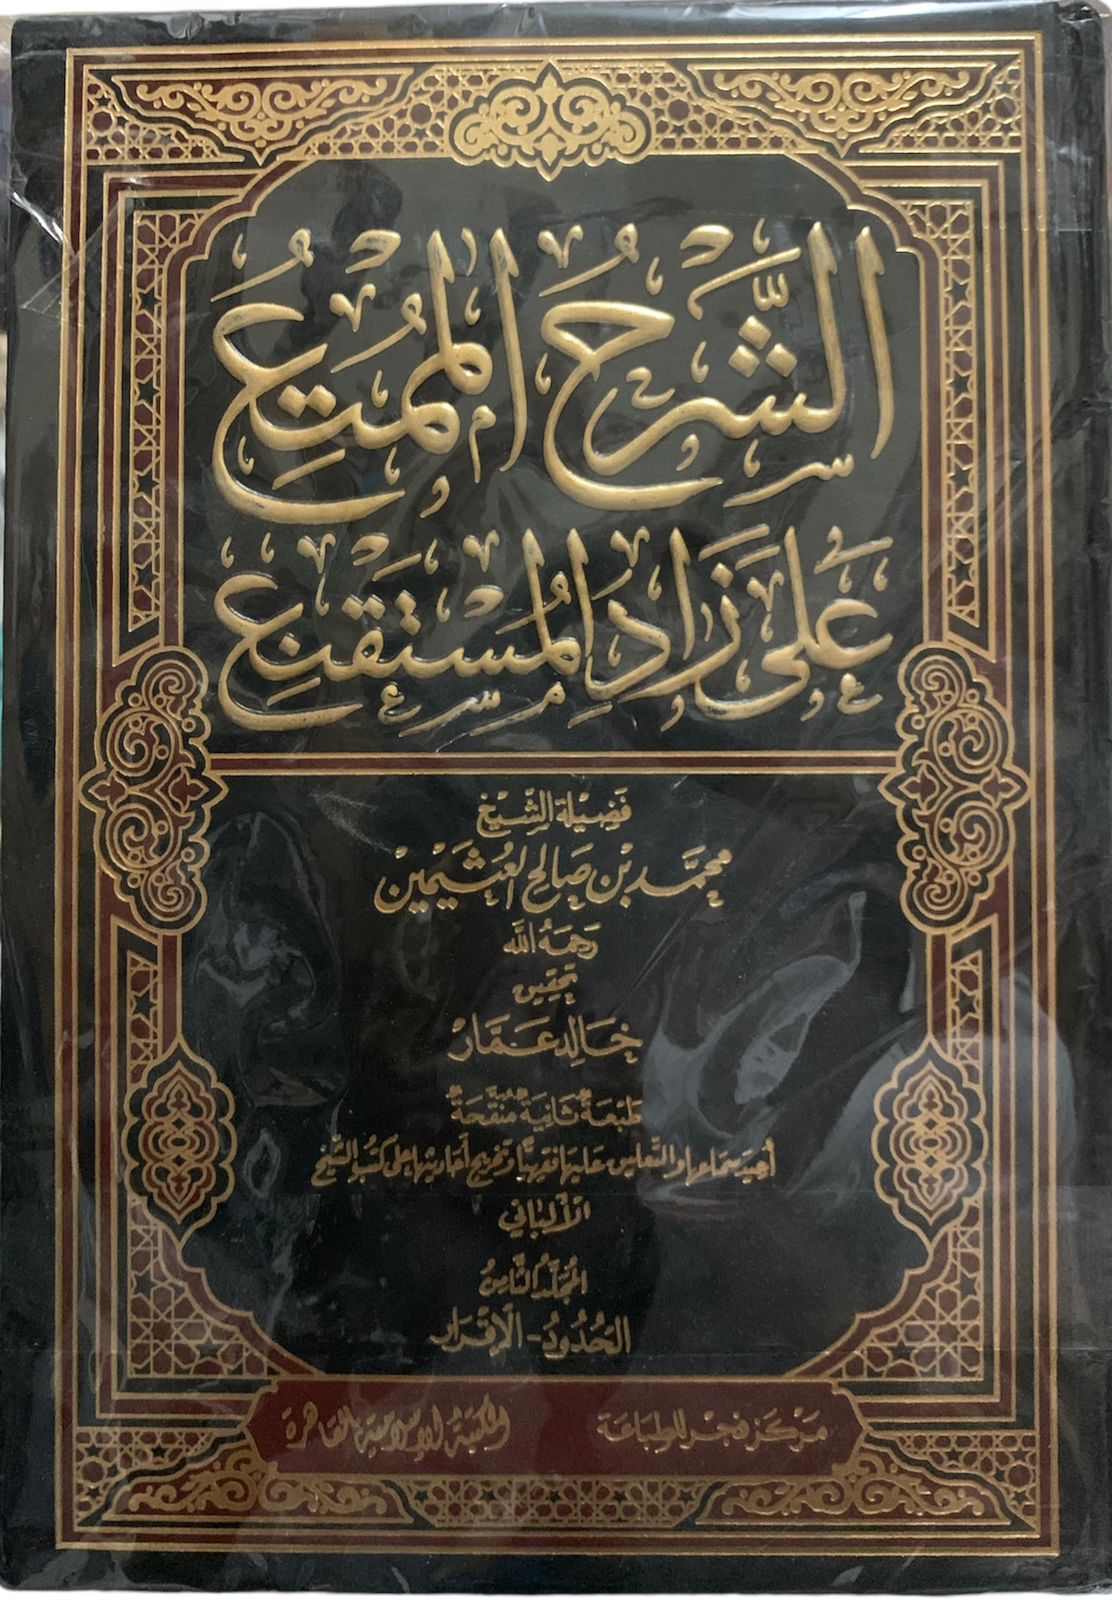 الشَّرْحُ الْمُمْتِعُ
عَلَى زَادِ الْمُسْتَقْنِعِ
فَضِيْلَة الشَّيْخ
مُحَمَّد بْن صَالِح العُثَيْمِيْن
رَحِمَهُ اللَّه
تحقيق
خَالِد عَمَّارْ
طَبْعَةٌ ثَانِيَةٌ مُنَقَّحَةٌ
أعيد سماعها والتعليق عليها فقهيًا وتخريج أحاديثها على كتب الشيخ
الألباني
المُجَلَّدُ الثَّامِنُ
الحُدُودُ - الإقْرَار
مَركَز فجْر للطباعَة    المكتبَة الإسلاميَّة بالقاهِرَة